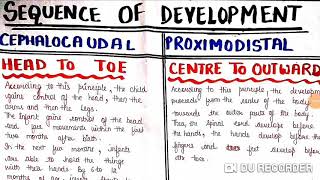 SEQUENCE OF DEVELOPMENT
CEPHALOCAUDAL
HEAD TO TOE
According to this principle, the child
gains control of the head, then the
arms and then the legs.
The Infant gains control of the head
and face movements within the first
two months after birth.
In the next few months, infants
are able to hold the things
with their hands. By 6 to 12
months of age
PROXIMODISTAL
CENTRE TO OUTWARD
According to this principle, the development
proceeds from the center of the body
towards the outer parts of the body.
Thus, the spinal cord develops before
the hands, the hands develop before the
fingers and feet develop before
the toes.
DU RECORDER